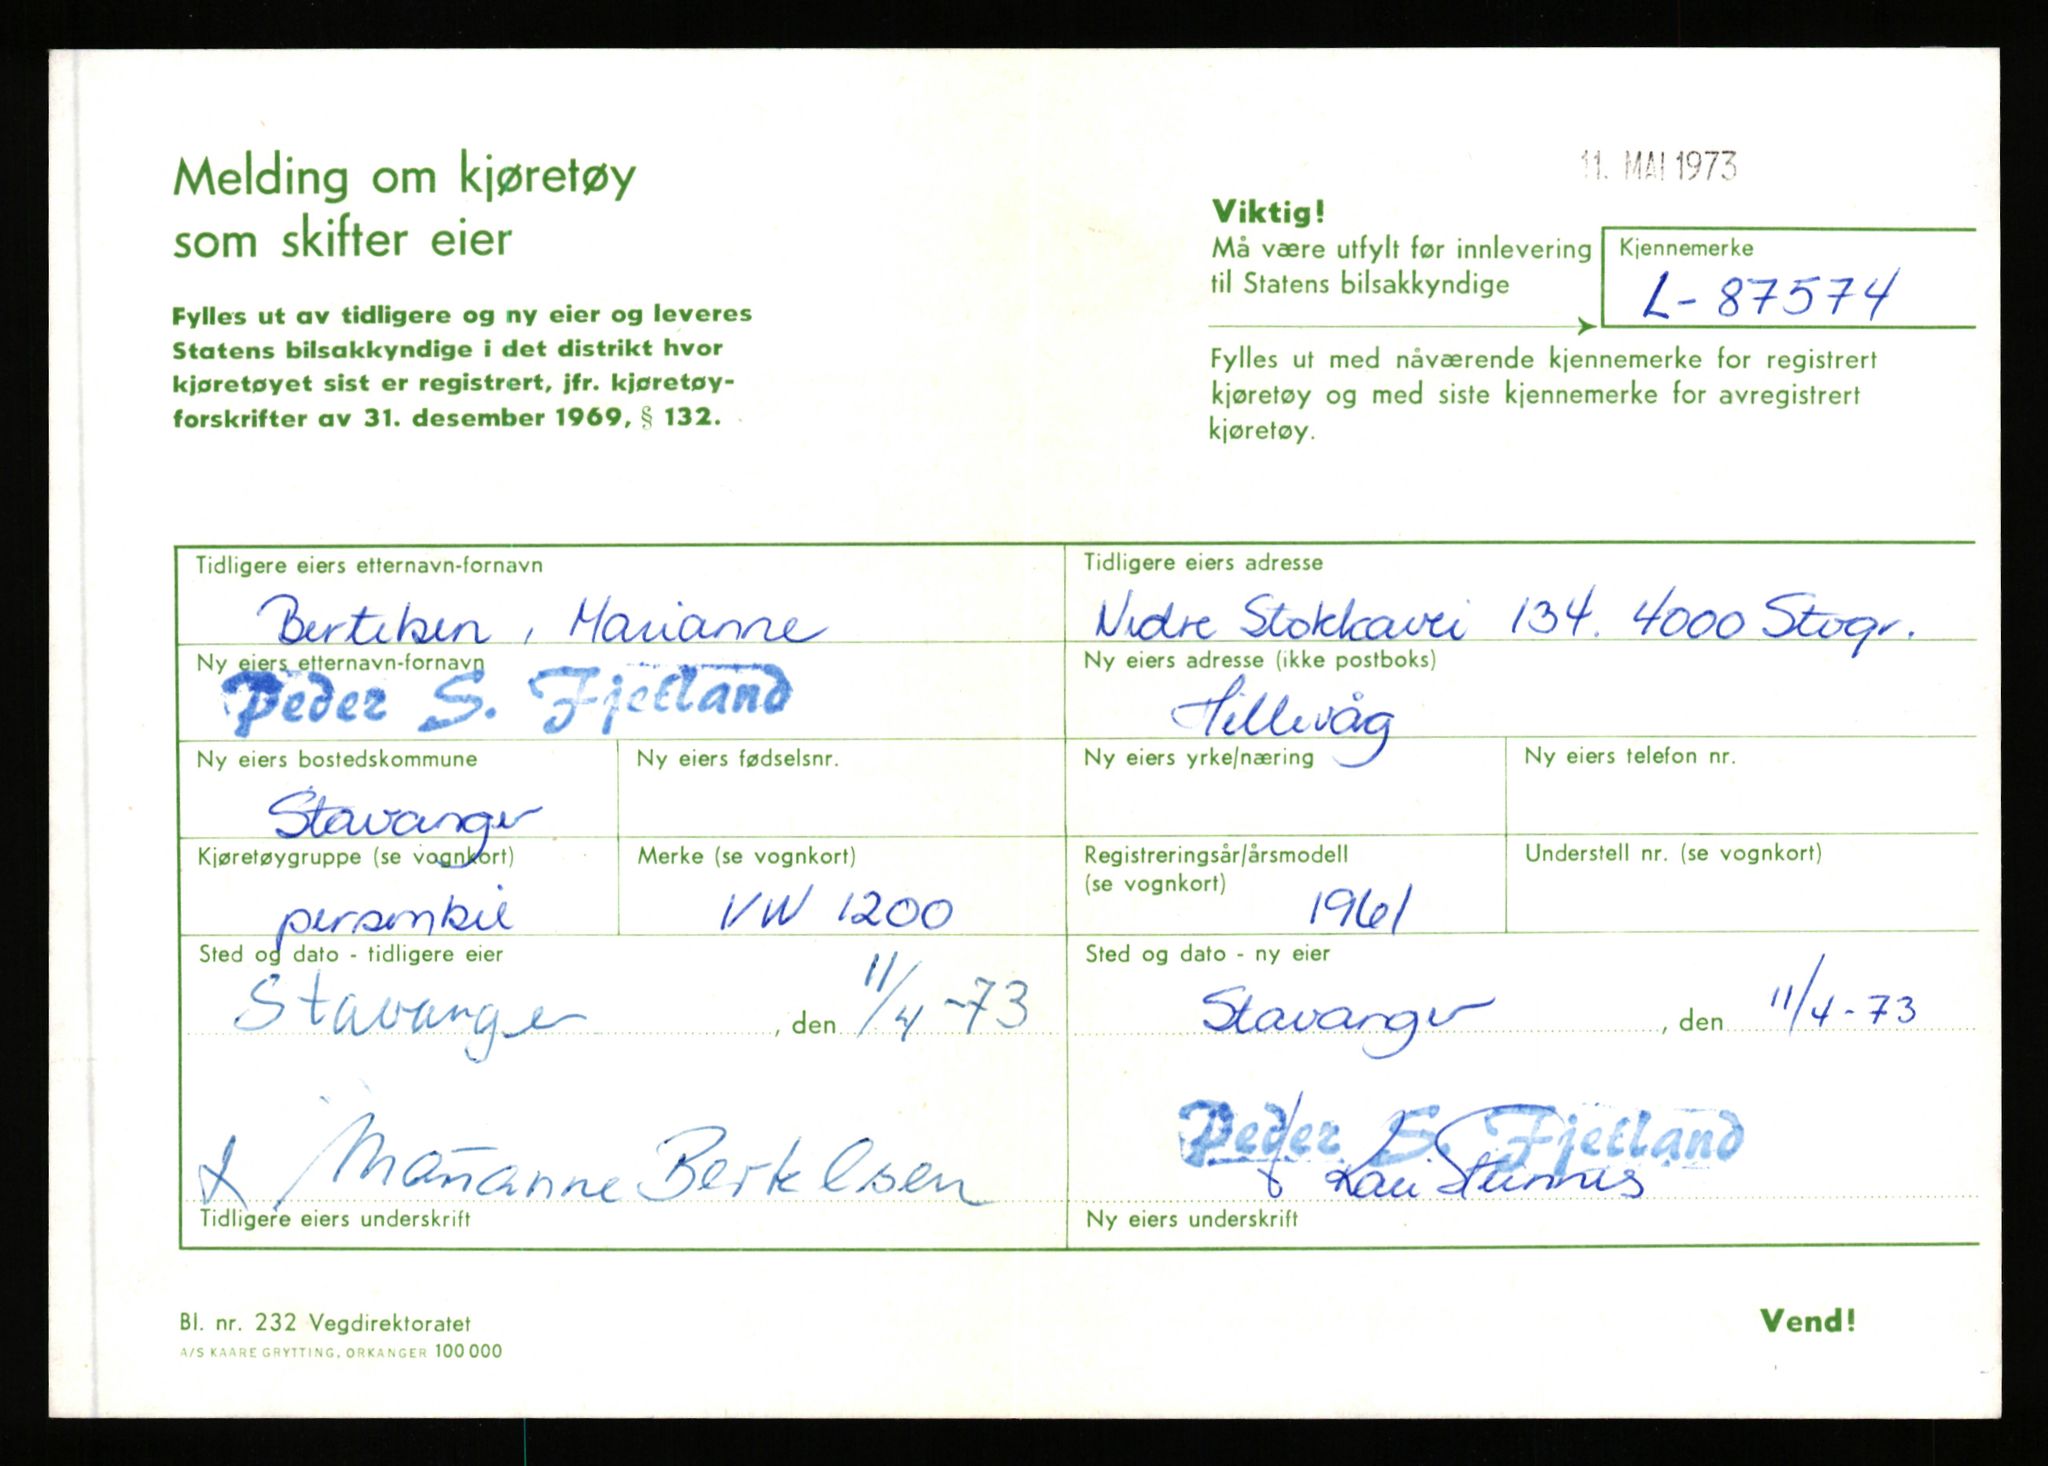 Melding om kjøretøy
som skifter eier
Fylles ut av tidligere og ny eier og leveres
Statens bilsakkyndige i det distrikt hvor
kjøretøyet sist er registrert, jfr. kjøretøy-
forskrifter av 31. desember 1969, § 132.
11. MAI 1973
Viktig!
Må være utfylt før innlevering
til Statens bilsakkyndige
Kjennemerke
L-87574
Fylles ut med nåværende kjennemerke for registrert
kjøretøy og med siste kjennemerke for avregistrert
kjøretøy.
Tidligere eiers etternavn-fornavn
Bertelsen, Marianne
Tidligere eiers adresse
Nedre Stokkavei 134. 4000 Stvgr.
Ny eiers etternavn-fornavn
Peder S. Fjetland
Ny eiers adresse (ikke postboks)
Hillevåg
Ny eiers bostedskommune
Stavanger
Ny eiers fødselsnr.
Ny eiers yrke/næring
Ny eiers telefon nr.
Kjøretøygruppe (se vognkort)
personbil
Merke (se vognkort)
VW 1200
Registreringsår/årsmodell
(se vognkort)
1961
Understell nr. (se vognkort)
Sted og dato - tidligere eier
Stavanger, den 11/4-73
Sted og dato - ny eier
Stavanger, den 11/4-73
x Marianne Bertelsen
Tidligere eiers underskrift
Peder S. Fjetland
Ny eiers underskrift
Bl. nr. 232 Vegdirektoratet
A/S KAARE GRYTTING, ORKANGER 100 000
Vend!